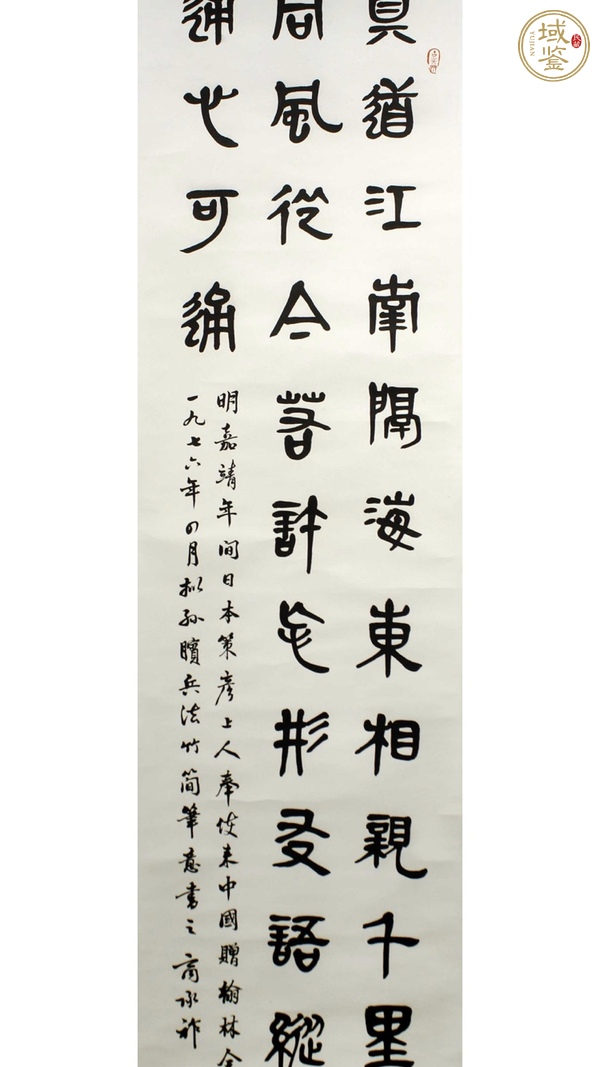 道江南隔海東相親千里
同風從今若許忘形友語縱
通心可通
明嘉靖年間日本策彥上人奉使来中國贈翰林全
一九七六年四月拟孫臏兵法竹簡筆意書之 商承祚
域鉴
YUJIAN